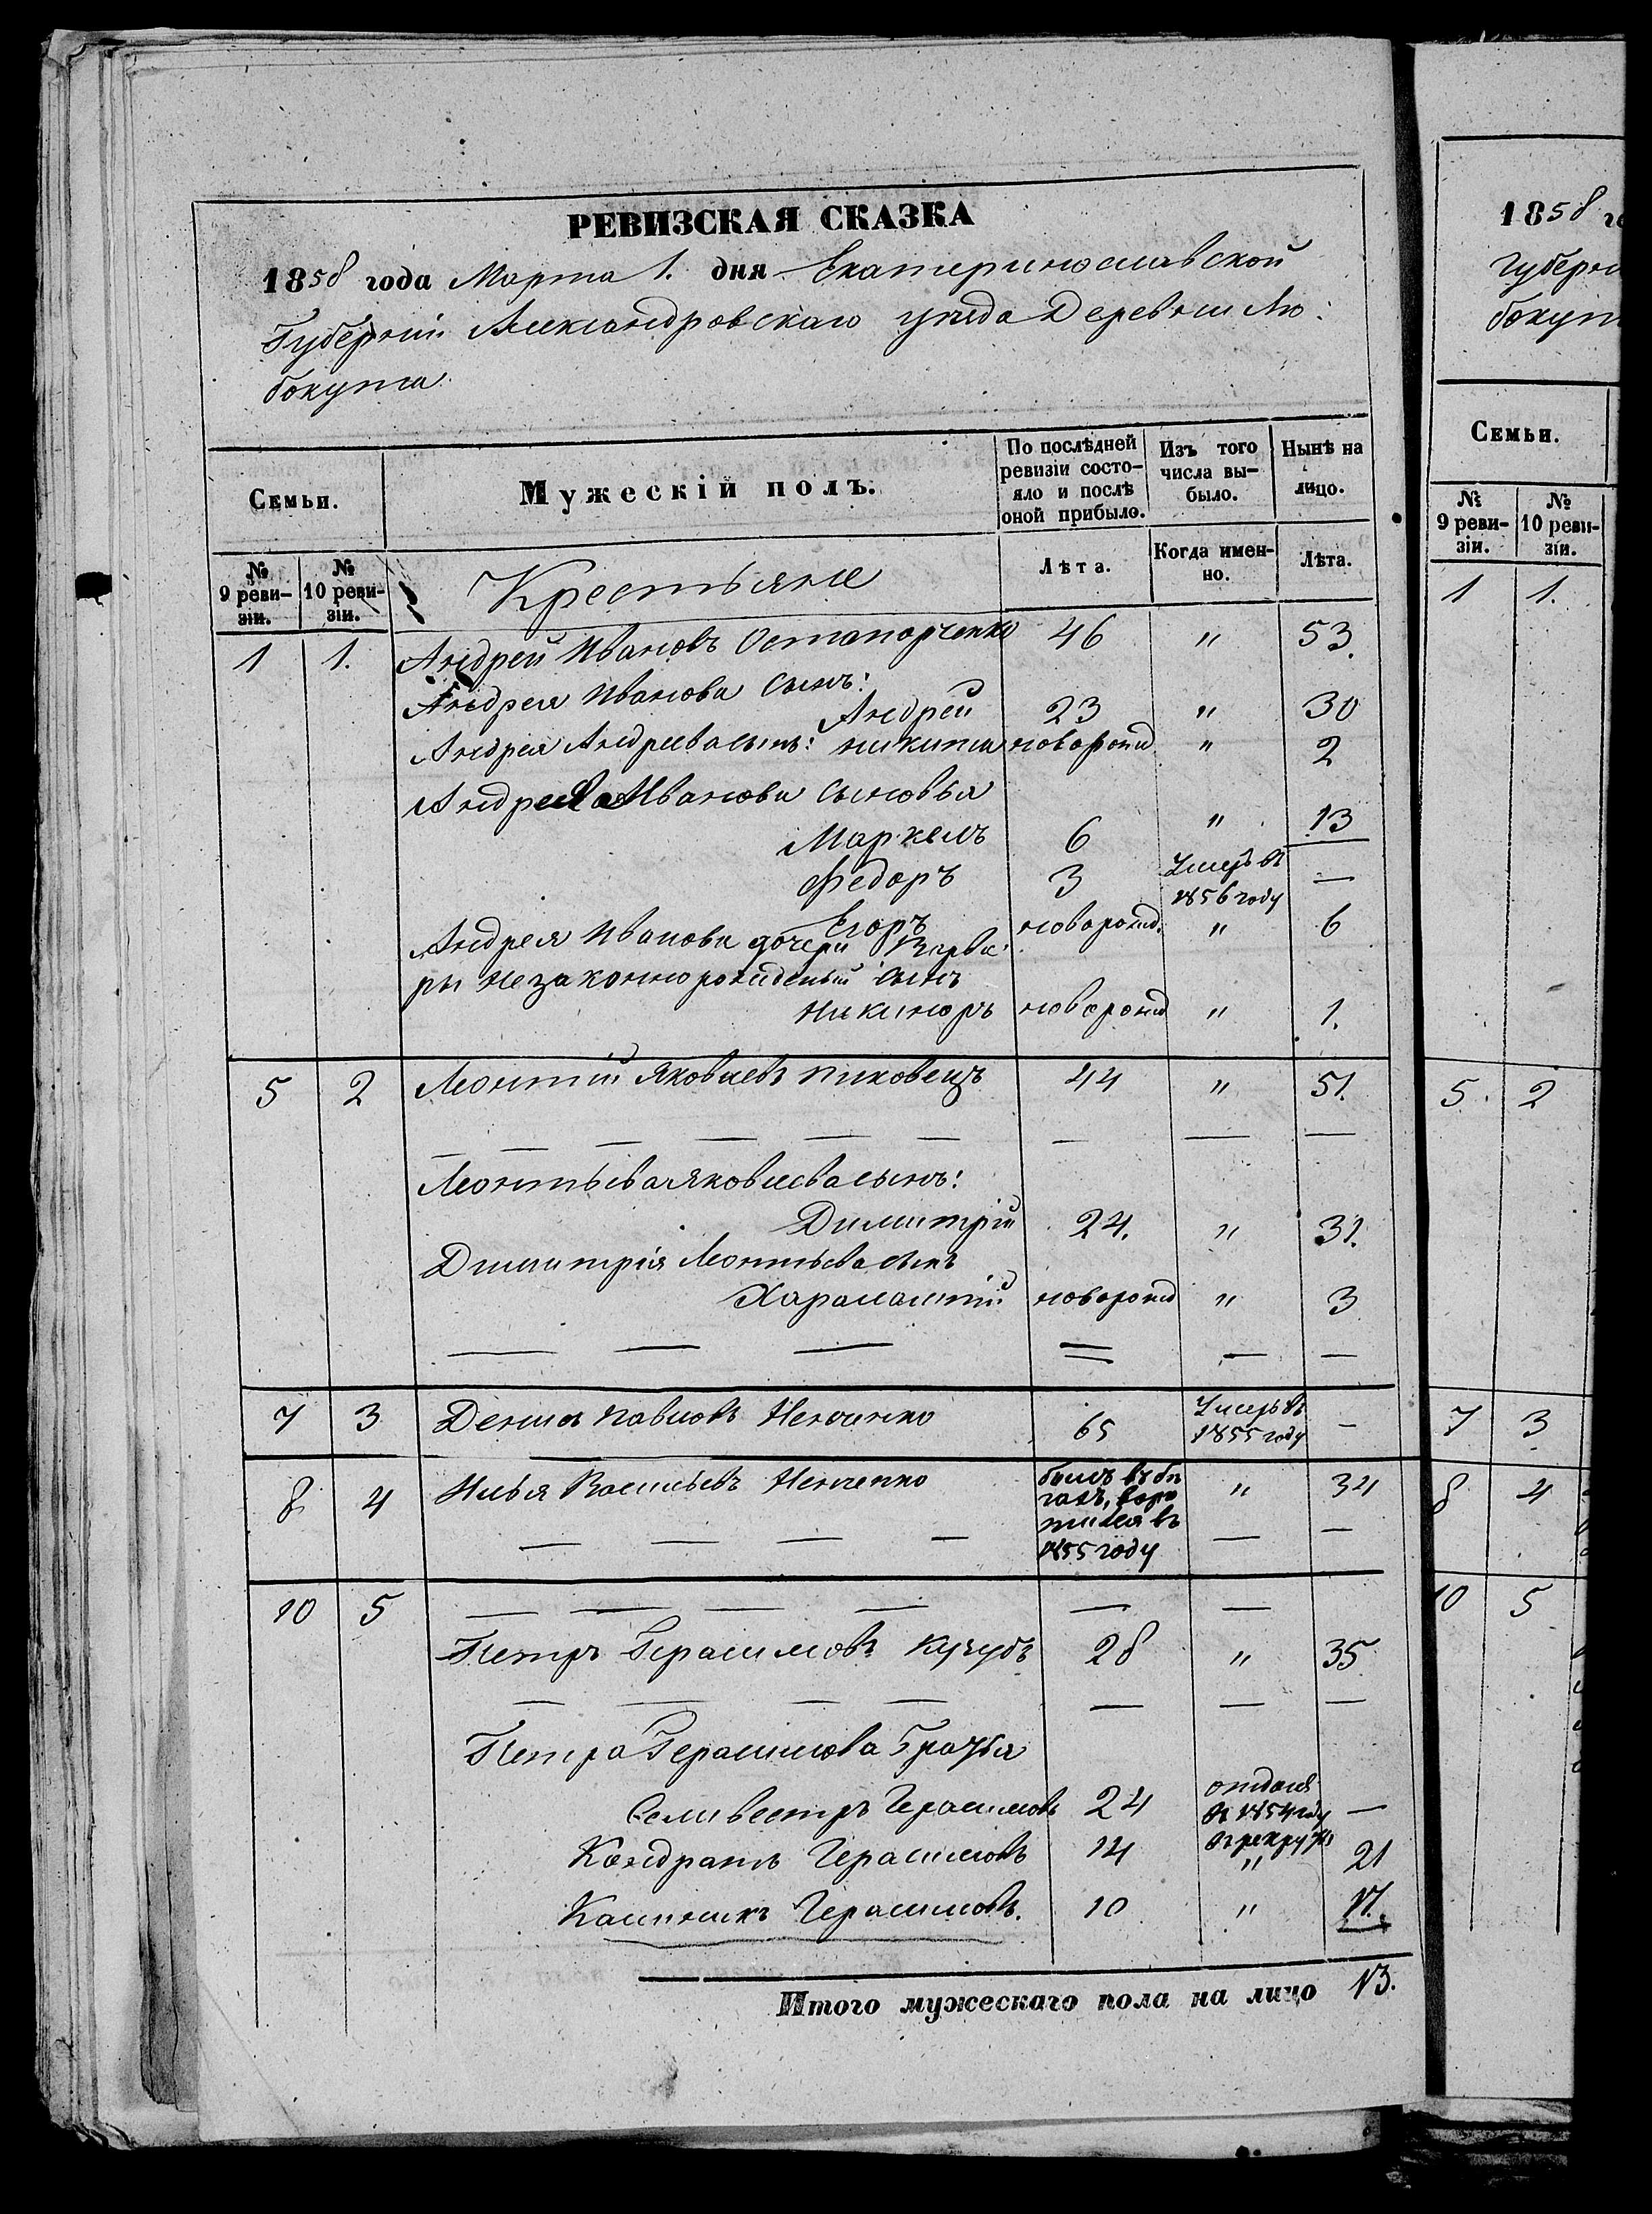 РЕВИЗСКАЯ СКАЗКА
1858 года Марта 1. дня Екатеринославской
Губерніи Александровскаго уѣзда Деревни Лю:
бокута
Семьи.
Мужескій полъ.
По послѣдней ревизіи состо-
яло и послѣ оной прибыло.
Изъ того числа вы-
было.
Нынѣ на лицо.
№ 9 реви-
зіи.
№ 10 реви-
зіи.
Крестьяне
Лѣта.
Когда имен-
но.
Лѣта.
1 1. Андрей Ивановъ Остапорченко 46 " 53.
Андрея Иванова Сынъ:
Андрей 23 " 30
Андрея Андреева сынъ: никита новорожд " 2
Андрея Иванова Сыновья
Маркелъ 6 " 13
Федоръ 3 Умеръ въ 1856 году —
Егоръ новорожд. " 6
Андрея Иванова дочери Варва:
ры незаконнорожденый сынъ
Никиноръ новорожд " 1.
5 2 Леонтій Яковлевъ пиковецъ 44 " 51.
— — — — — — — —
Леонтьева Яковлева сынъ:
Димитрій 24. " 31.
Димитрія Леонтьева сынъ
Харалампій новорожд " 3
— — — = — —
7 3 Дениса Павловъ Ненченко 65 Умеръ въ 1855 году —
8 4 Илья Васильевъ Ненченко былъ въ бѣ
гахъ, воро
тился въ
1855 году " 34
— — — — — —
10 5 — — — — — —
Петръ Герасимовъ Кучубъ 28 " 35
— — — — — — —
Петра Герасимова Братья
Селивестръ Герасимовъ 24 отданъ
въ 1854 году
въ рекруты —
Кондратъ Герасимовъ 14 " 21
Калиникъ Герасимовъ. 10 " 17.
Итого мужескаго пола на лицо 13.
1858 го
Губерн
бокут
Семьи.
№ 9 реви-
зіи.
№ 10 реви-
зіи.
1 1.
5. 2
7 3
8 4
10 5